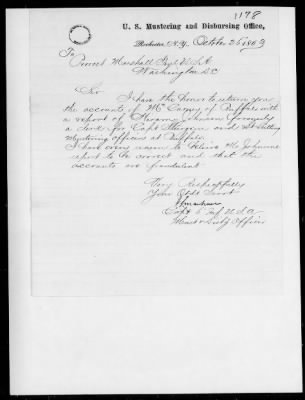 1178
U. S. Mustering and Disbursing Office,
Rochester, N.Y. October 25 1869
To
Provost Marshall Genl U.S.A
Washington D.C
Sir
I have the honor to return you
the accounts of Mr of Buffalo with
a report of Johnson formerly
a clerk for Capt and Lt
Mustering officers at Buffalo.
I have every reason to believe Mr Johnsons
report to be correct and that the
accounts are fraudulent
Very Respectfully
Your Obdt Servt
Capt 6 Inf U.S.A
Officer